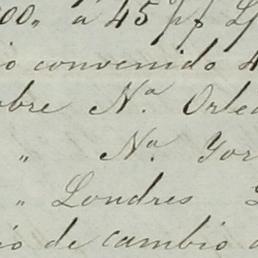 00„ a 45 p%
o convenido 4
obre Nª Orle
„ Nª Yor
„ Londres
io de cambio